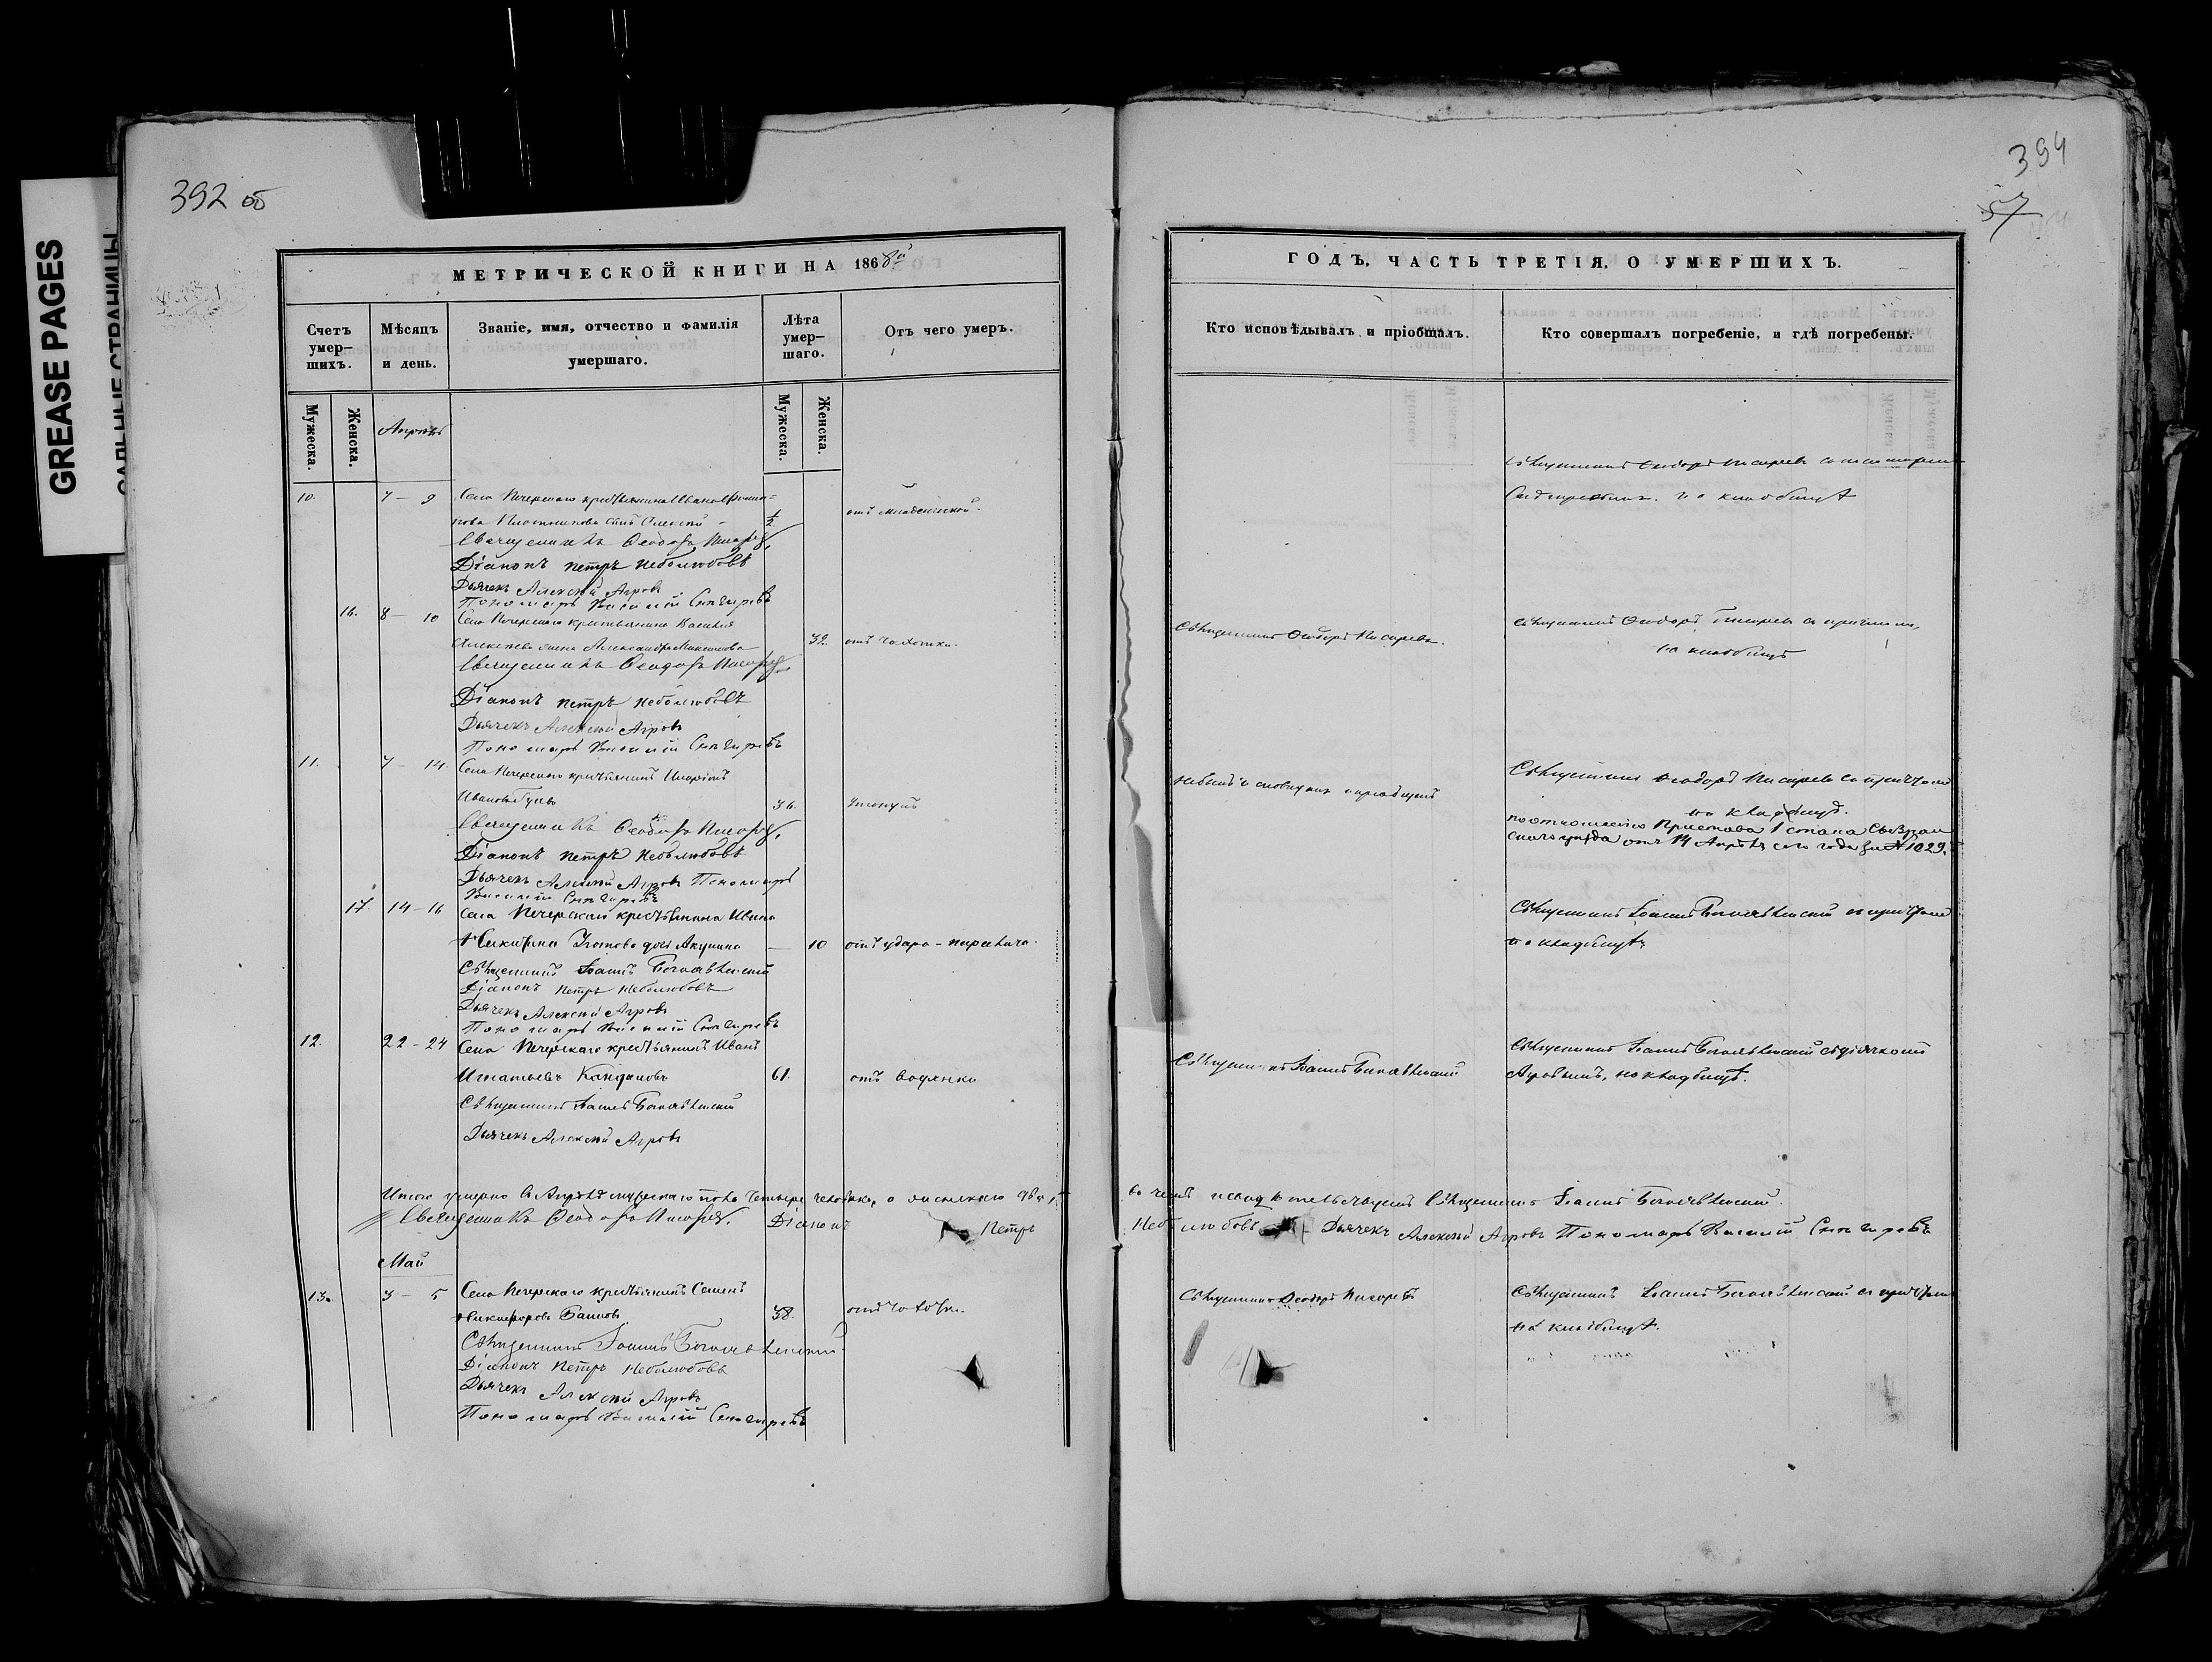 GREASE PAGES
САЛЬНЫЕ СТРАНИЦЫ
392 об
МЕТРИЧЕСКОЙ КНИГИ НА 1868й
Счетъ умер-шихъ.
Мѣсяцъ и день.
Званіе, имя, отчество и фамилія умершаго.
Лѣта умер-шаго.
Отъ чего умеръ.
Мужеска.
Женска.
Мужеска.
Женска.
Апрѣль
10. 7 – 9 Села Печерскаго крестьянина Ивана
Плотникова сынъ Алексѣй – ½ отъ младенческой.
Священникъ Ѳеодоръ Писаревъ
Діаконъ Петръ Неболюбовъ
Дьячекъ Алексѣй Агровъ
Пономарь Василій Снегиревъ
16. 8 – 10 Села Печерскаго крестьянина Василья
Алексѣева жена Александра 32. отъ чахотки.
Священникъ Ѳеодоръ Писаревъ
Діаконъ Петръ Неболюбовъ
Дьячекъ Алексѣй Агровъ
Пономарь Василій Снегиревъ
11. 7 – 14. Села Печерскаго крестьянинъ
Ивановъ 36. утонулъ
Священникъ Ѳеодоръ Писаревъ
Діаконъ Петръ Неболюбовъ
Дьячекъ Алексѣй Агровъ Пономарь
Василій Снегиревъ
17. 14 – 16 Села Печерскаго крестьянина Ивана
Никитина дочь Акулина – 10 отъ удара – паралича.
Священникъ Іоаннъ Богоявленскій
Діаконъ Петръ Неболюбовъ
Дьячекъ Алексѣй Агровъ
Пономарь Василій Снегиревъ
12. 22 – 24 Села Печерскаго крестьянинъ Иванъ
Игнатьевъ 61. отъ водянки
Священникъ Іоаннъ Богоявленскій
Дьячекъ Алексѣй Агровъ
Итого умерло въ Апрѣлѣ мужескаго пола четыре человѣка, а женскаго двѣ,
Священникъ Ѳеодоръ Писаревъ. Діаконъ Петръ
Май
13. 3 – 5 Села Печерскаго крестьянинъ Семенъ
Никифоровъ 38. отъ чахотки.
Священникъ Іоаннъ Богоявленскій
Діаконъ Петръ Неболюбовъ
Дьячекъ Алексѣй Агровъ
Пономарь Василій Снегиревъ
394
57
ГОДЪ, ЧАСТЬ ТРЕТІЯ, О УМЕРШИХЪ.
Кто исповѣдывалъ и пріобщалъ.
Кто совершалъ погребеніе, и гдѣ погребены.
Священникъ Ѳеодоръ Писаревъ съ пономаремъ
на кладбищѣ
Священникъ Ѳеодоръ Писаревъ.
Священникъ Ѳеодоръ Писаревъ съ причтомъ,
на кладбищѣ
Священникъ Ѳеодоръ Писаревъ съ причтомъ
на кладбищѣ.
по отношенію Пристава 1 стана Сызран
скаго уѣзда отъ 14 Апрѣля сего года за № 1029.
Священникъ Іоаннъ Богоявленскій съ причтомъ
на кладбищѣ
Священникъ Іоаннъ Богоявленскій
Священникъ Іоаннъ Богоявленскій съ дьячкомъ
Агровымъ, на кладбищѣ.
въ чемъ и свидѣтельствуемъ Священникъ Іоаннъ Богоявленскій.
Неболюбовъ Дьячекъ Алексѣй Агровъ Пономарь Василій Снегиревъ
Священникъ Ѳеодоръ Писаревъ
Священникъ Іоаннъ Богоявленскій съ причтомъ
на кладбищѣ.